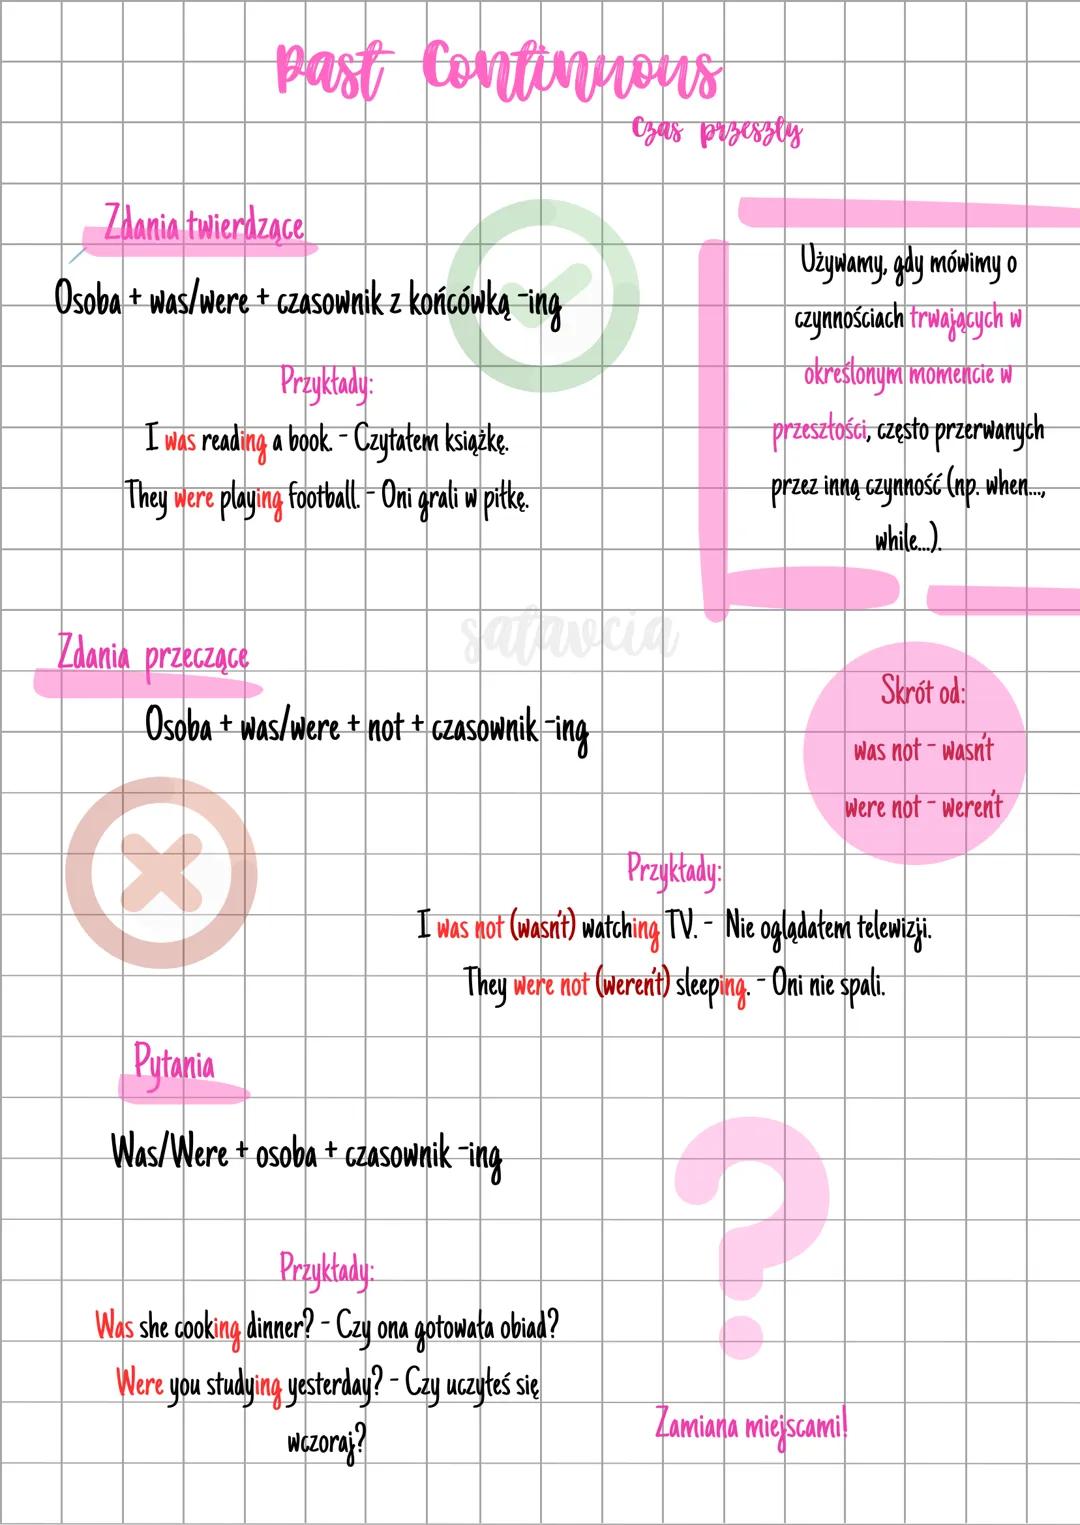 Past Continuous
Czas przeszły
Zdania twierdzące
Osoba + was/were + czasownik z końcówką -ing
Przykłady:
I was reading a book. - Czytałem książkę.
They were playing football. - Oni grali w piłkę.
Używamy, gdy mówimy o
czynnościach trwających w
określonym momencie w
przeszłości, często przerwanych
przez inną czynność (np. when...,
while...).
satavcia
Zdania przeczące
Osoba + was/were + not + czasownik -ing
Skrót od:
was not - wasn't
were not - weren't
Przykłady:
I was not (wasn't) watching TV. - Nie oglądałem telewizji.
They were not (weren't) sleeping. - Oni nie spali.
Pytania
Was/Were + osoba + czasownik -ing
Przykłady:
Was she cooking dinner? - Czy ona gotowała obiad?
Were you studying yesterday? - Czy uczyłeś się
wczoraj?
Zamiana miejscami!